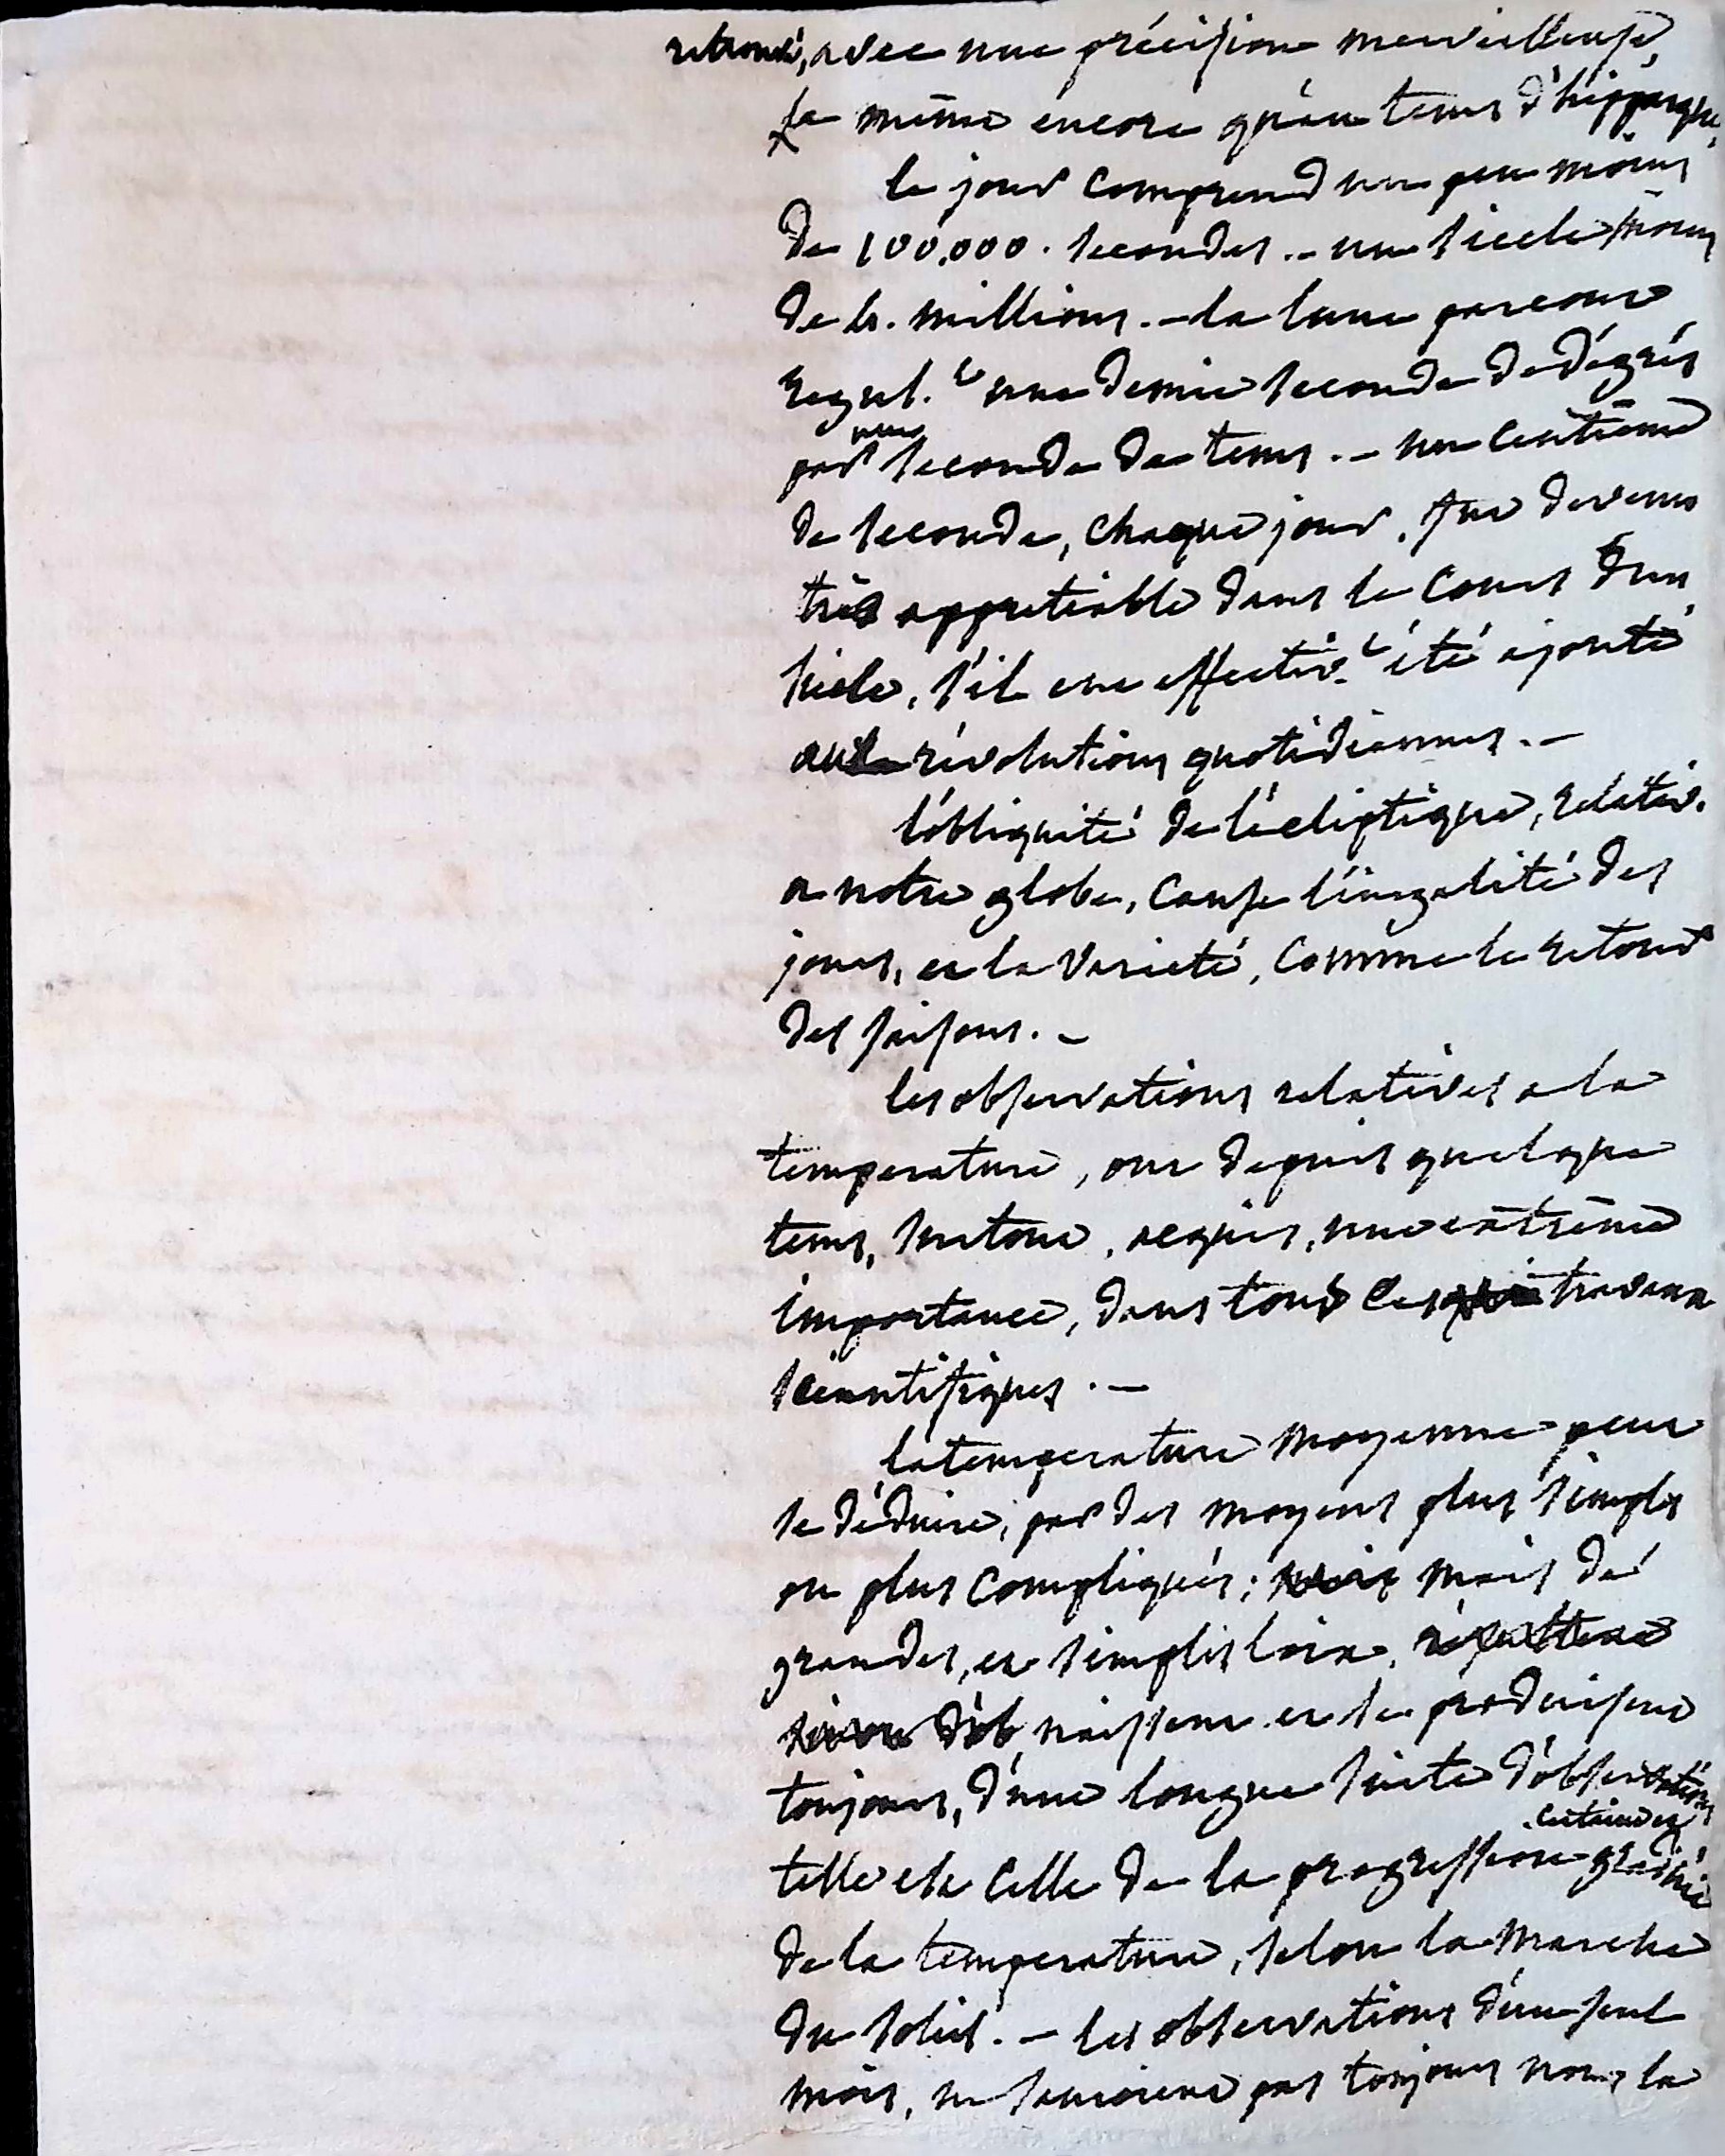 retrouvé, avec une précision merveilleuse,
la même encore qu'au tems d'hipparque,
le jour comprend un peu moins
de 100,000. secondes. - un siecle moins
de 4. millions. - la lune parcourt
regul.t une demie seconde de dégrés
par une seconde de tems. - un centième
de seconde, chaque jour, fut devenu
très appretiable dans le cours d'un
siècle, s'il eut effectiv.t été ajouté
aux révolutions quotidiennes. -
l'obliquité de l'écliptique, relativ.
a notre globe, cause l'inégalité des
jours, et la varieté, comme le retour
des saisons. -
les observations relatives a la
temperature, ont depuis quelque
tems, surtout, acquis, une extrême
importance, dans tous les travaux
scientifiques. -
la temperature moyenne peut
se déduire, par des moyens plus simples
ou plus compliqués; mais de
grandes, et simples loix, résultent
naissent et se produisent
toujours, d'une longue suite d'observations
certaines et
telle est celle de la progression graduée
de la temperature, selon la marche
du soleil. - les observations d'un seul
mois, ne sauroient pas toujours nous la